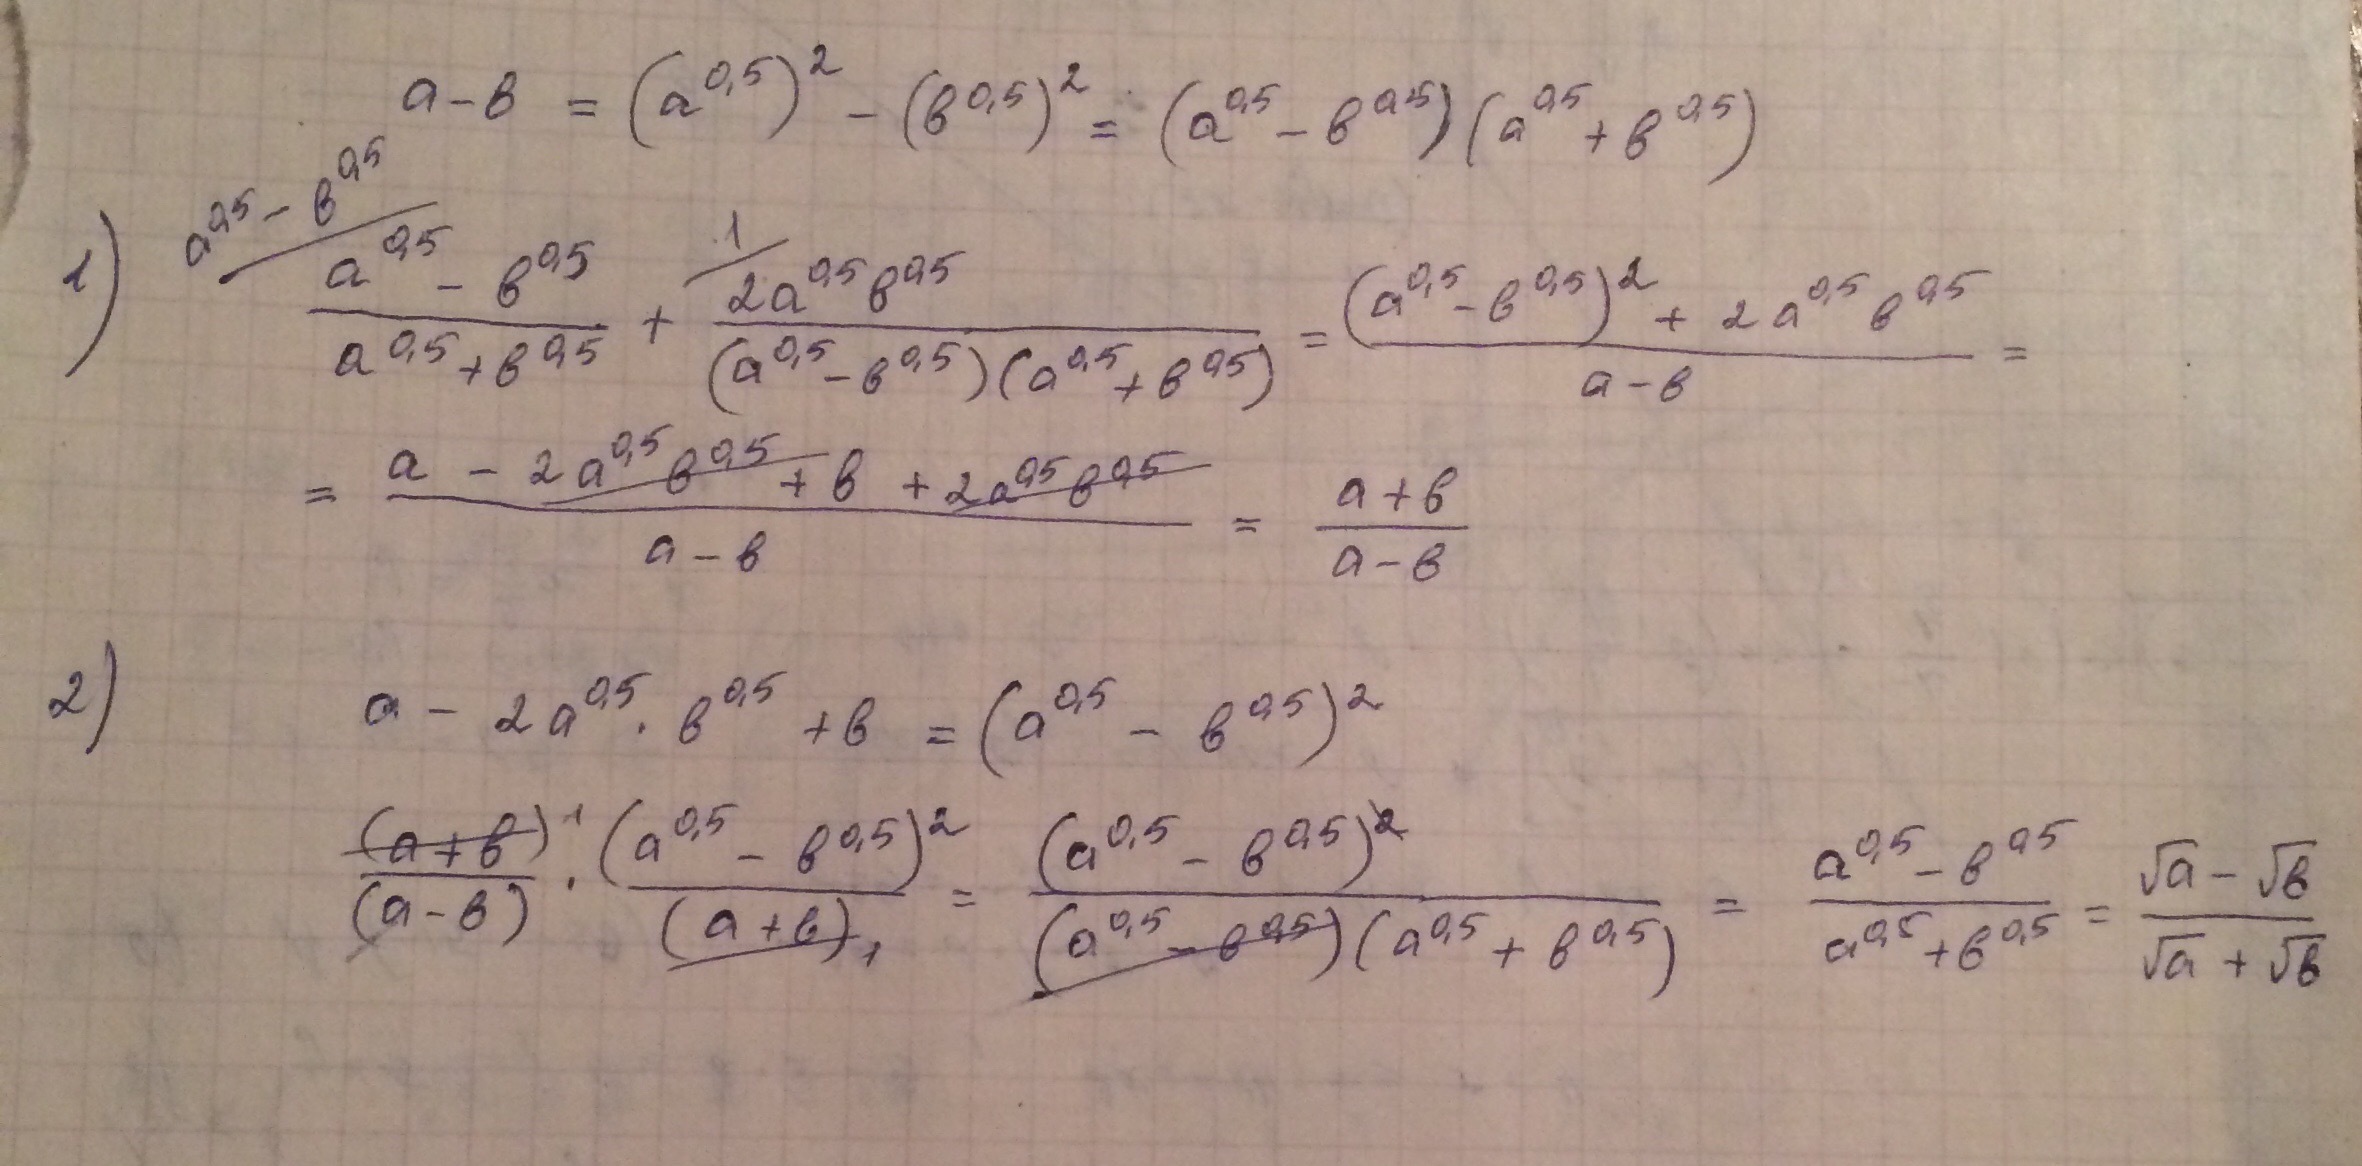 a - в = (a^0,5)^2 - (в^0,5)^2 = (a^0,5 - в^0,5)(a^0,5 + в^0,5)
1) a^0,5 - в^0,5 / (a^0,5 - в^0,5)/(a^0,5 + в^0,5) + 1 / (2a^0,5 в^0,5)/((a^0,5 - в^0,5)(a^0,5 + в^0,5)) = ((a^0,5 - в^0,5)^2 + 2a^0,5 в^0,5)/(a - в) =
= (a - 2a^0,5 в^0,5 + в + 2a^0,5 в^0,5)/(a - в) = (a + в)/(a - в)
2) a - 2a^0,5 · в^0,5 + в = (a^0,5 - в^0,5)^2
(a + в)^1/(a - в) · (a^0,5 - в^0,5)^2/(a + в)_1 = (a^0,5 - в^0,5)^2/((a^0,5 - в^0,5)(a^0,5 + в^0,5)) = (a^0,5 - в^0,5)/(a^0,5 + в^0,5) = (√a - √в)/(√a + √в)